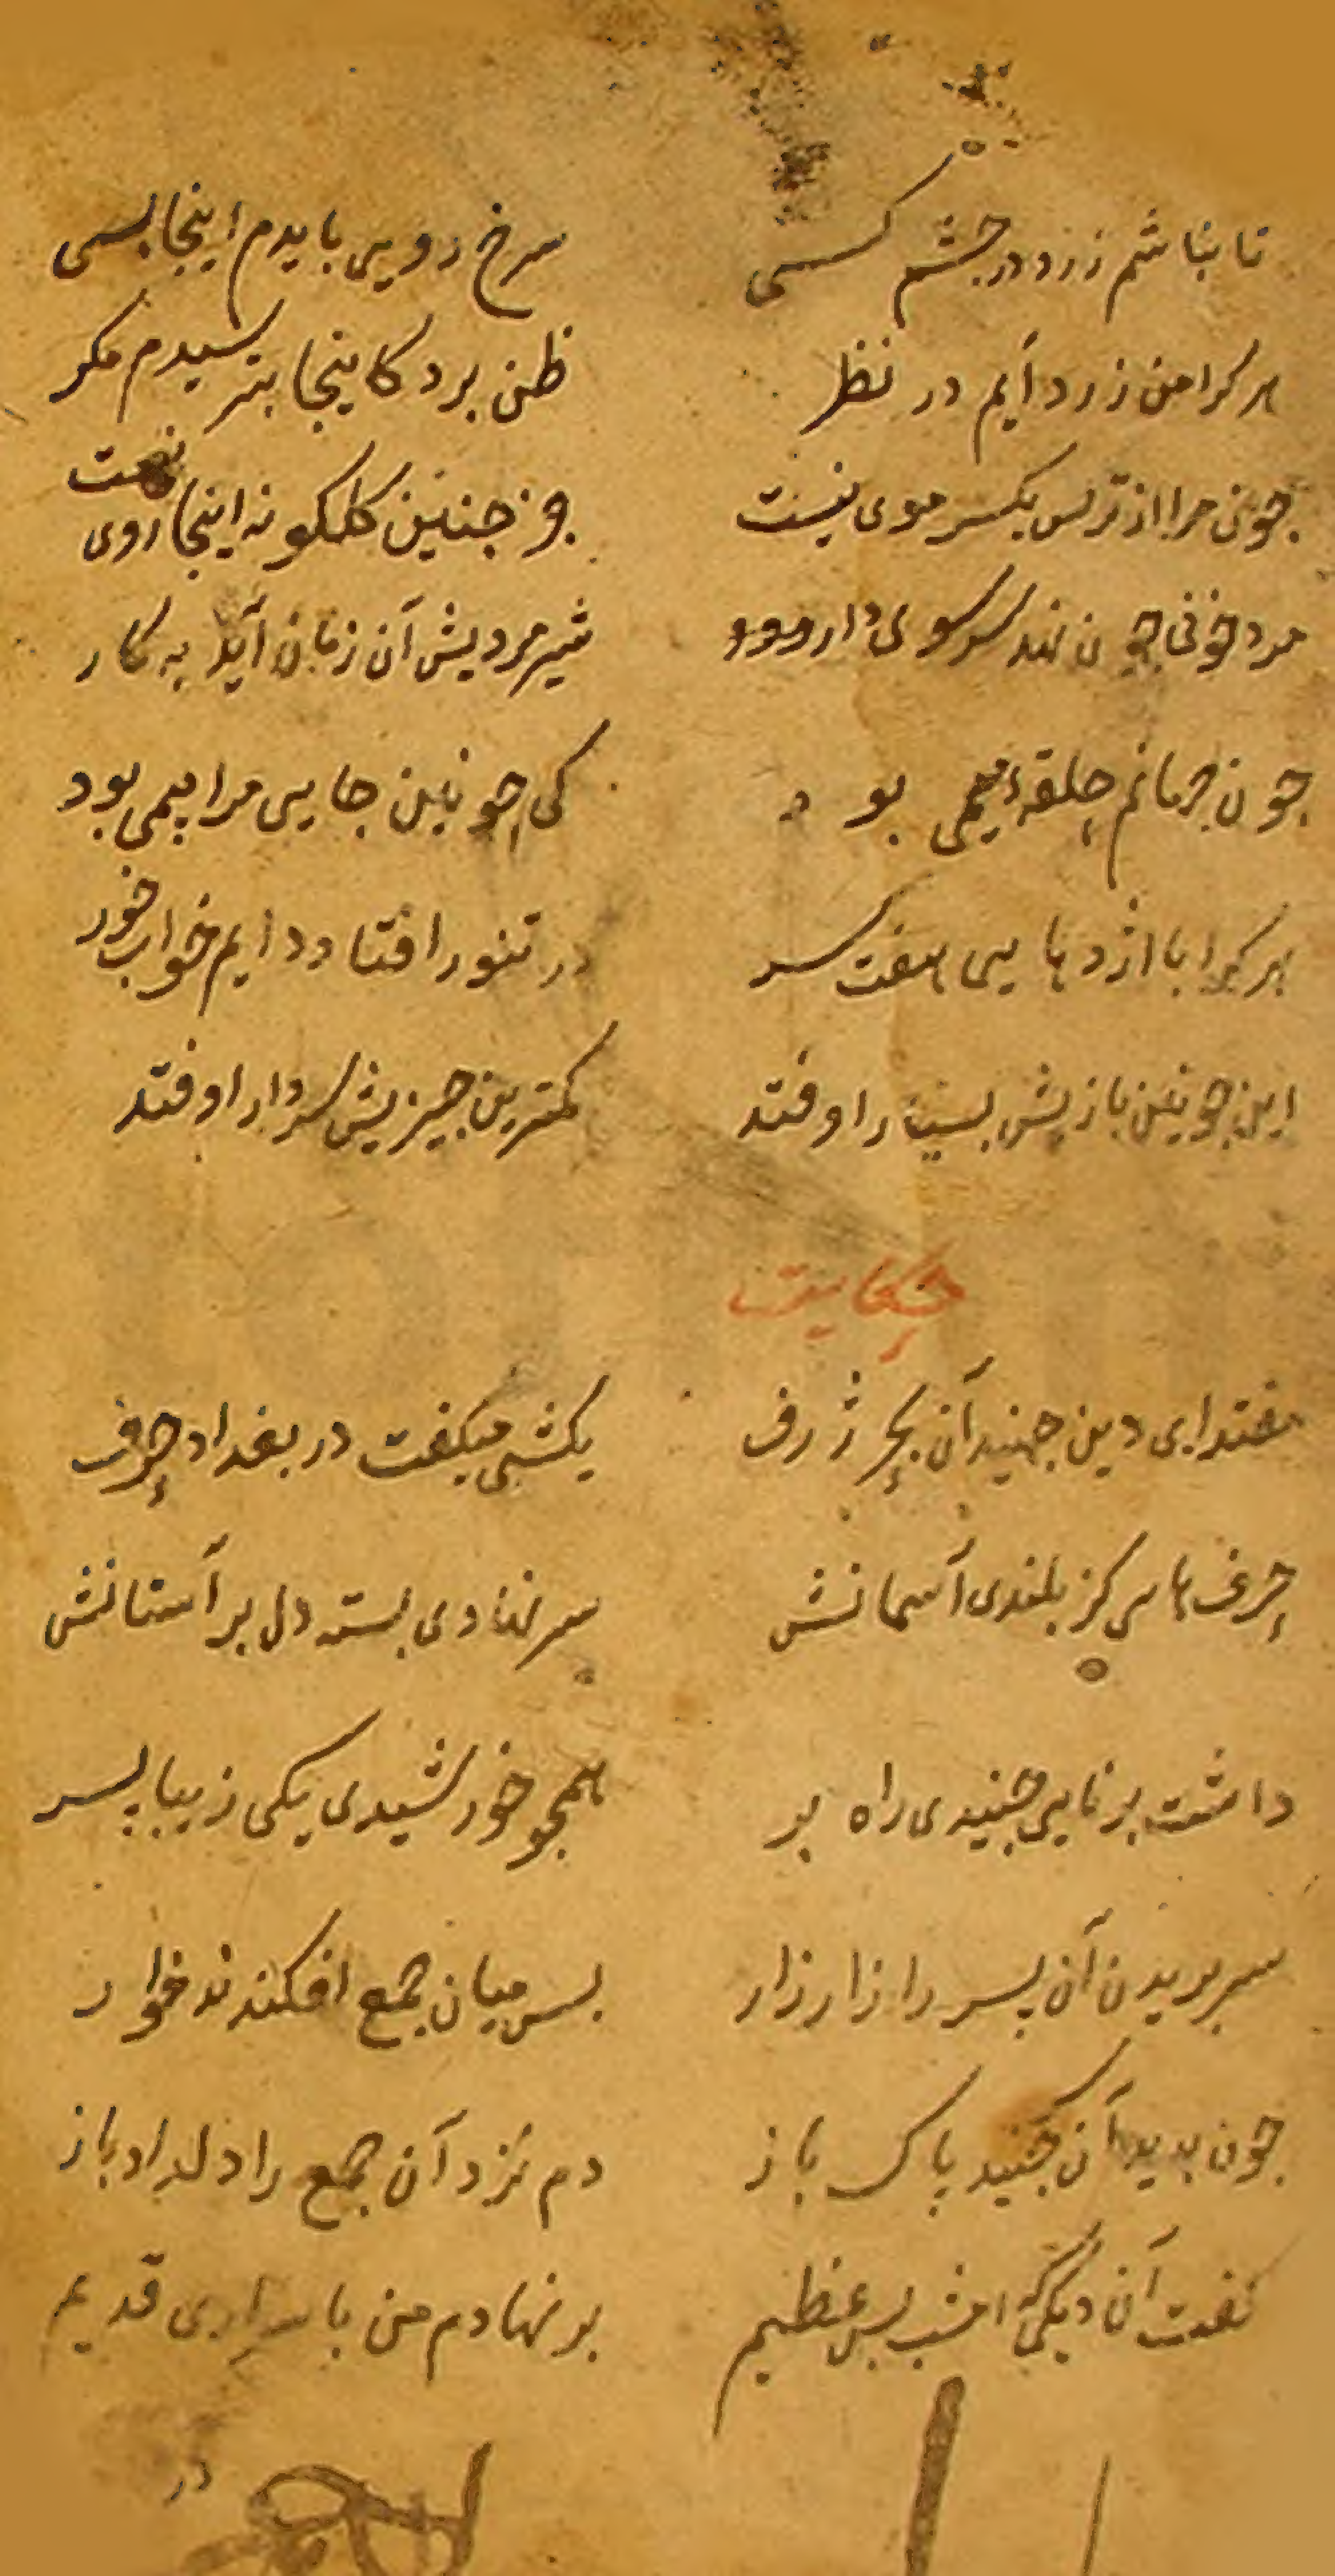 تا نباشم زرد در چشم کسی سرخ رویی بایدم اینجا بسی
هر کرا من زرد آیم در نظر ظن برد کاینجا بترسیدم مکر
جون مرا از ترس یکسر موی نیست جز جنین کلکونه اینجا روی نیست
مرد خونی جون نهد سر سوی دار شیر مردیش آن زمان آید به کار
جون جهانم حلقه میمی بود کی جونین جایی مرا بیمی بود
هر کرا با اژدهایی هفت سر در تنور افتاد دایم خواب خور
این جونین بازیش بسیار اوفتد کمترین جیزیش سر دار اوفتد
حکایت
مقتدای دین جنید آن بحر ژرف یکشبی میکفت در بغداد حرف
حرفهایی کز بلندی آسمانش سر نهادی بسته دل بر آستانش
داشت برنایی جنیدی راه بر همجو خورشیدی یکی زیبا پسر
سر بریدن آن پسر را زار زار بس میان جمع افکندند خوار
جون بدید آن جنید باک باز دم نزد آن جمع را دل داد باز
کفت آن دیکی که امشب بس عظیم بر نهادم من با قدیم
در